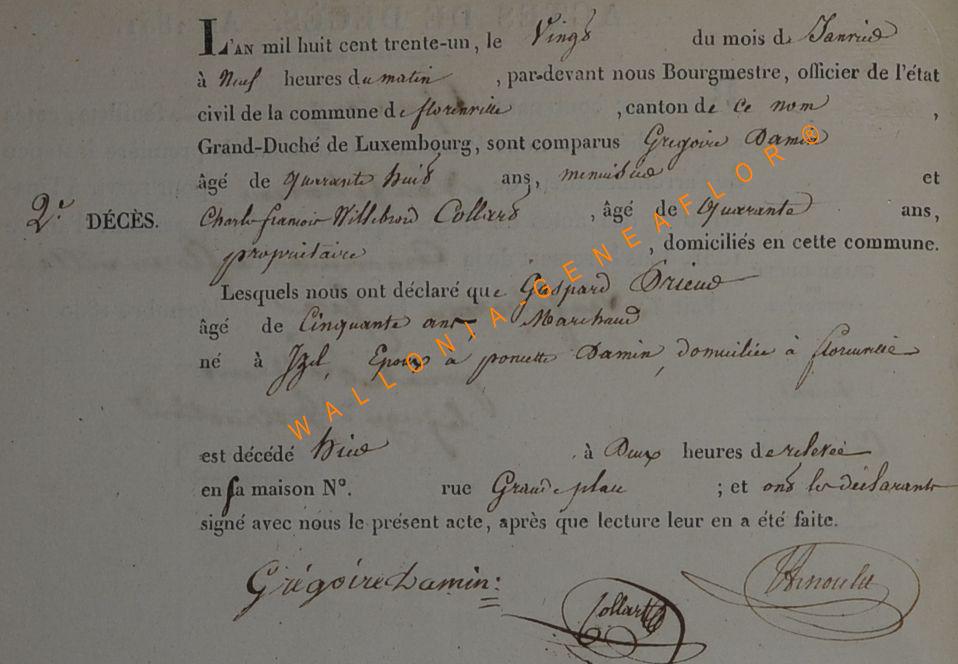 L'AN mil huit cent trente-un, le Vingt du mois de Janvier
à Neuf heures du matin, par-devant nous Bourgmestre, officier de l'état
civil de la commune de florenville, canton de ce nom,
Grand-Duché de Luxembourg, sont comparus Gregoire Damin
âgé de quarante huit ans, menuisier et
2.e DÉCÈS. Charle francoir Willebrord Collard, âgé de Quarante ans,
propriétaire, domiciliés en cette commune.
Lesquels nous ont déclaré que Gaspard
âgé de Cinquante ans Marchand
né à Izel, Epoux à poncette Damin, domiciliée à florenville
est décédé hier à Deux heures de relevée
en sa maison N°. rue Grande place ; et ont les déclarants
signé avec nous le présent acte, après que lecture leur en a été faite.
Grégoire Damin
Collart
WALLONIA-GENEAFLOR ®